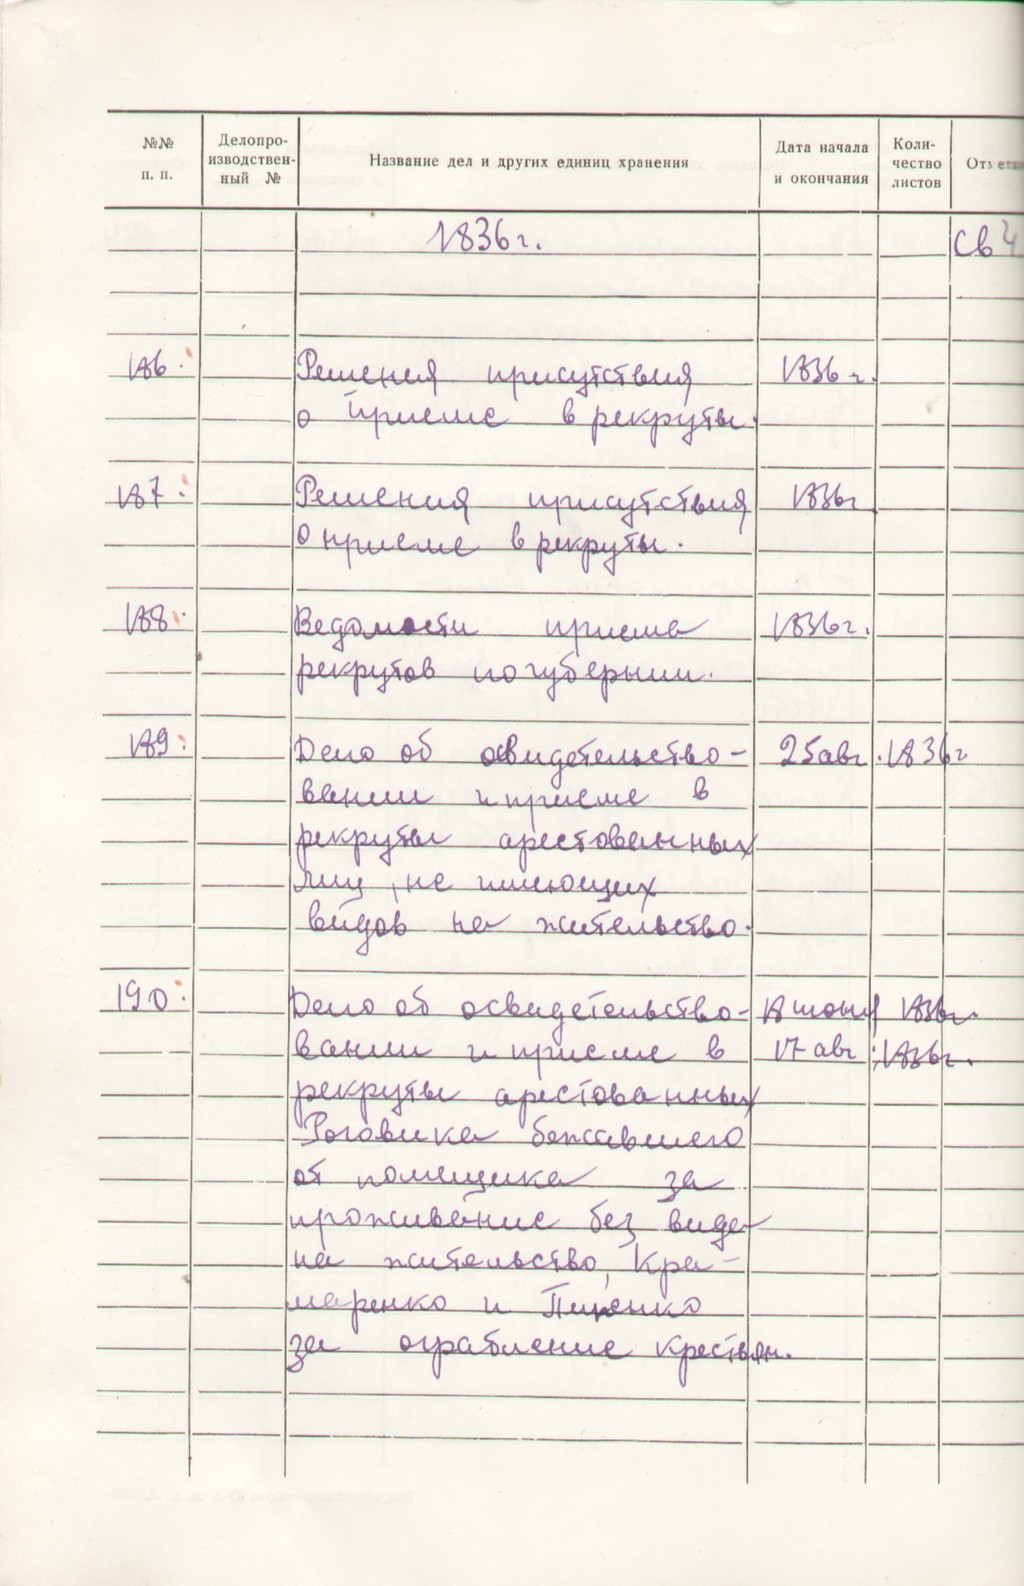 №№ п. п.
Делопро-
изводствен-
ный №
Название дел и других единиц хранения
Дата начала
и окончания
Коли-
чество
листов
Отметка
1836 г.
св 4
186.
Решения присутствия
1836 г.
о приеме в рекруты.
187.
Решения присутствия
1836г
о приеме в рекруты.
188.
Ведомости приема
1836г.
рекрутов по губернии.
189.
Дело об освидетельство-
25 авг. 1836г
вании и приеме в
рекруты арестованных
лиц, не имеющих
видов на жительство.
190.
Дело об освидетельство-
18 июня 1836г.
вании и приеме в
17 авг. 1836г.
рекруты арестованных
Роговика бежавшего
от помещика за
проживание без вида
на жительство, Кра-
маренко и
за ограбление крестьян.